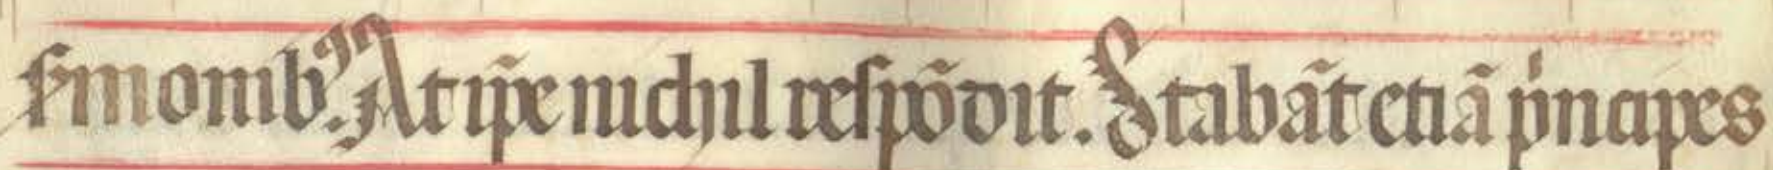 ẜmonibꝰ. At ip̄e nichil respōdit. Stabāt etiā pͥncipes